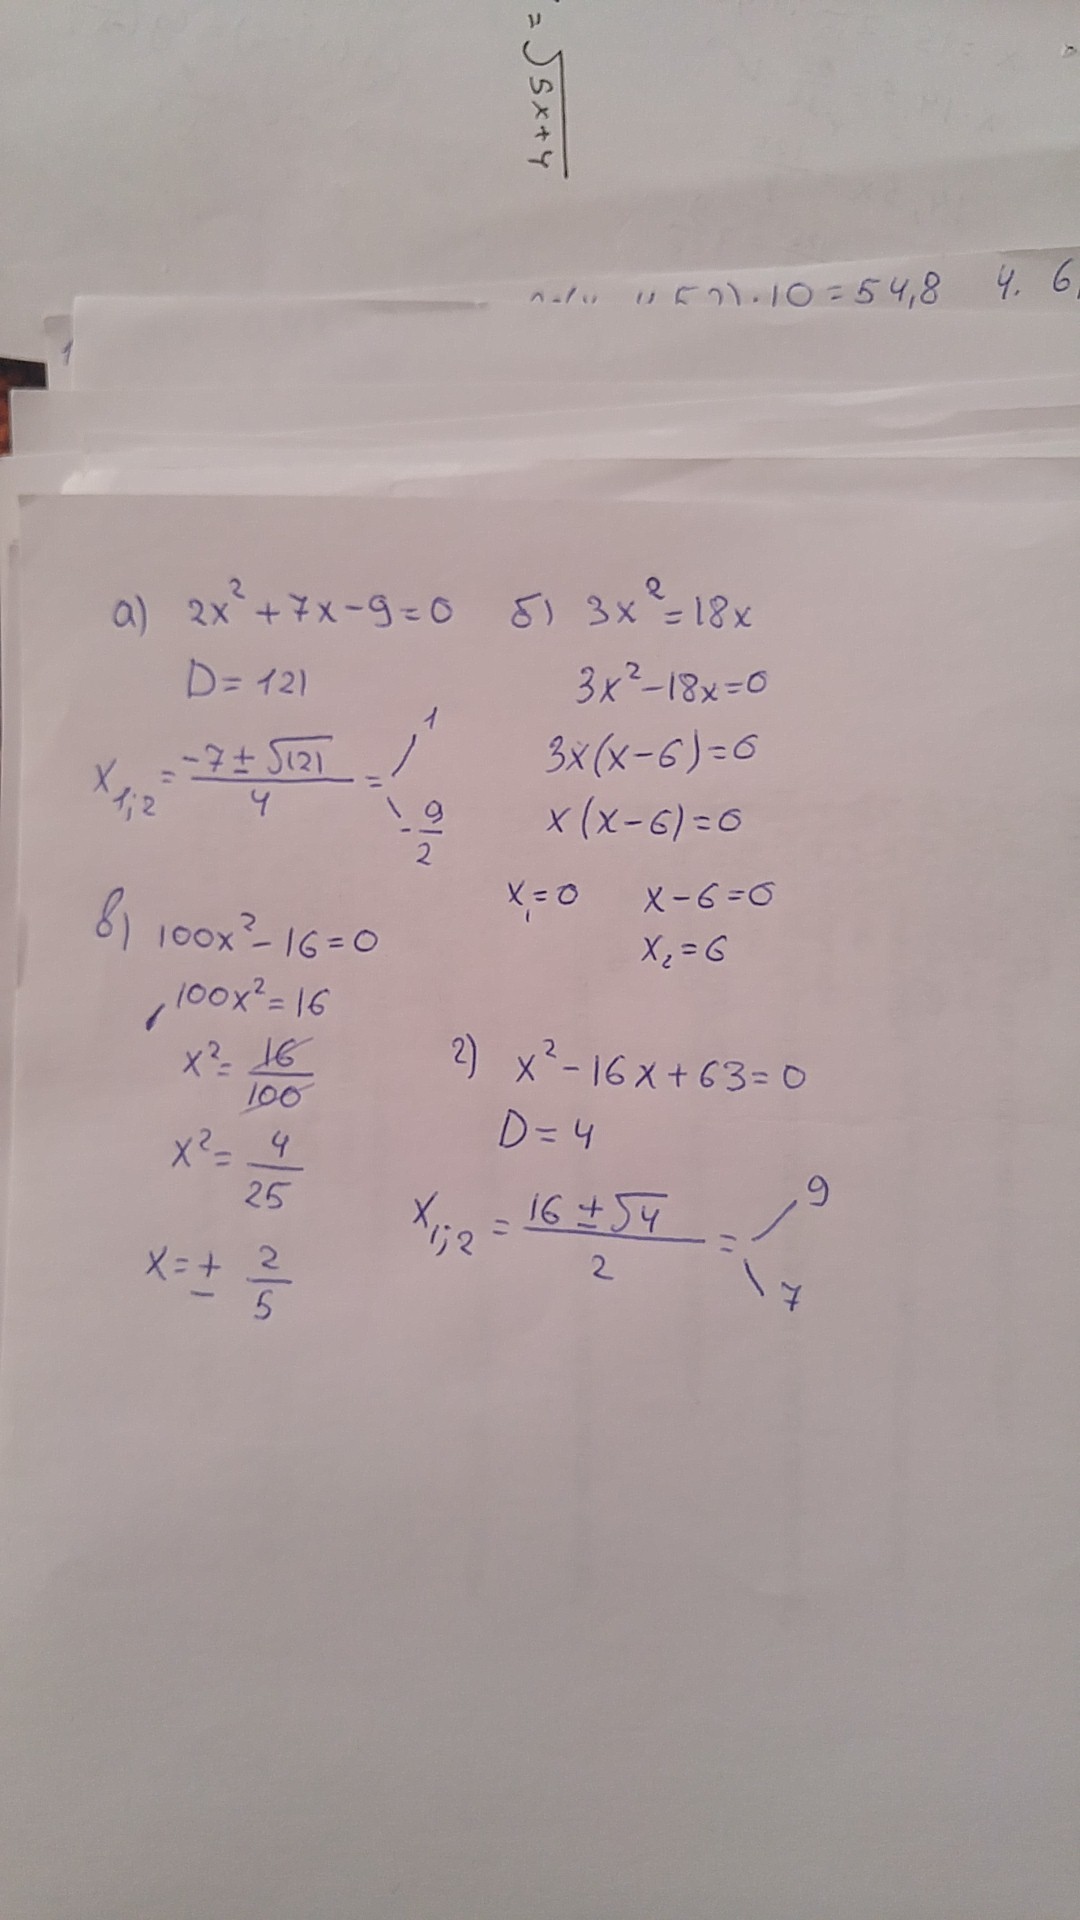 = √5x+4
·10=54,8 4. 6,
а) 2x²+7x-9=0
D=121
x₁;₂ = (-7±√121)/4 = 1
-9/2
б) 3x²=18x
3x²-18x=0
3x(x-6)=0
x(x-6)=0
x₁=0 x-6=0
x₂=6
в) 100x²-16=0
100x²=16
x²= 16/100
x²= 4/25
x=± 2/5
г) x²-16x+63=0
D=4
x₁;₂ = (16±√4)/2 = 9
7